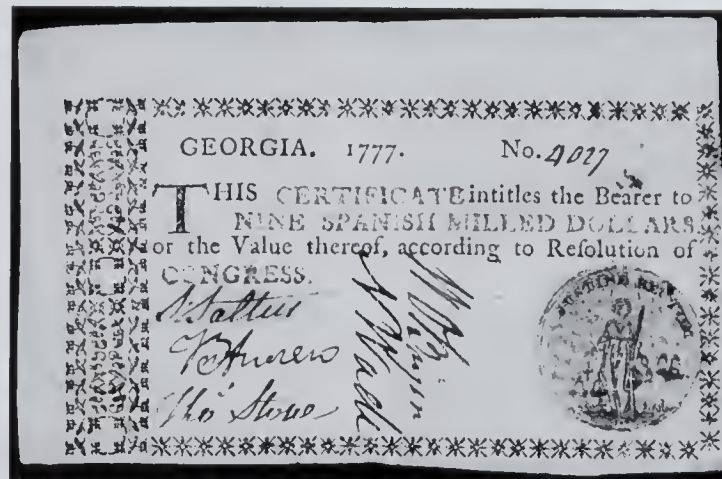 GEORGIA. 1777. No. 4027
THIS CERTIFICATE intitles the Bearer to
NINE SPANISH MILLED DOLLARS,
or the Value thereof, according to Resolution of
CONGRESS.
Thos Stone
N Wade